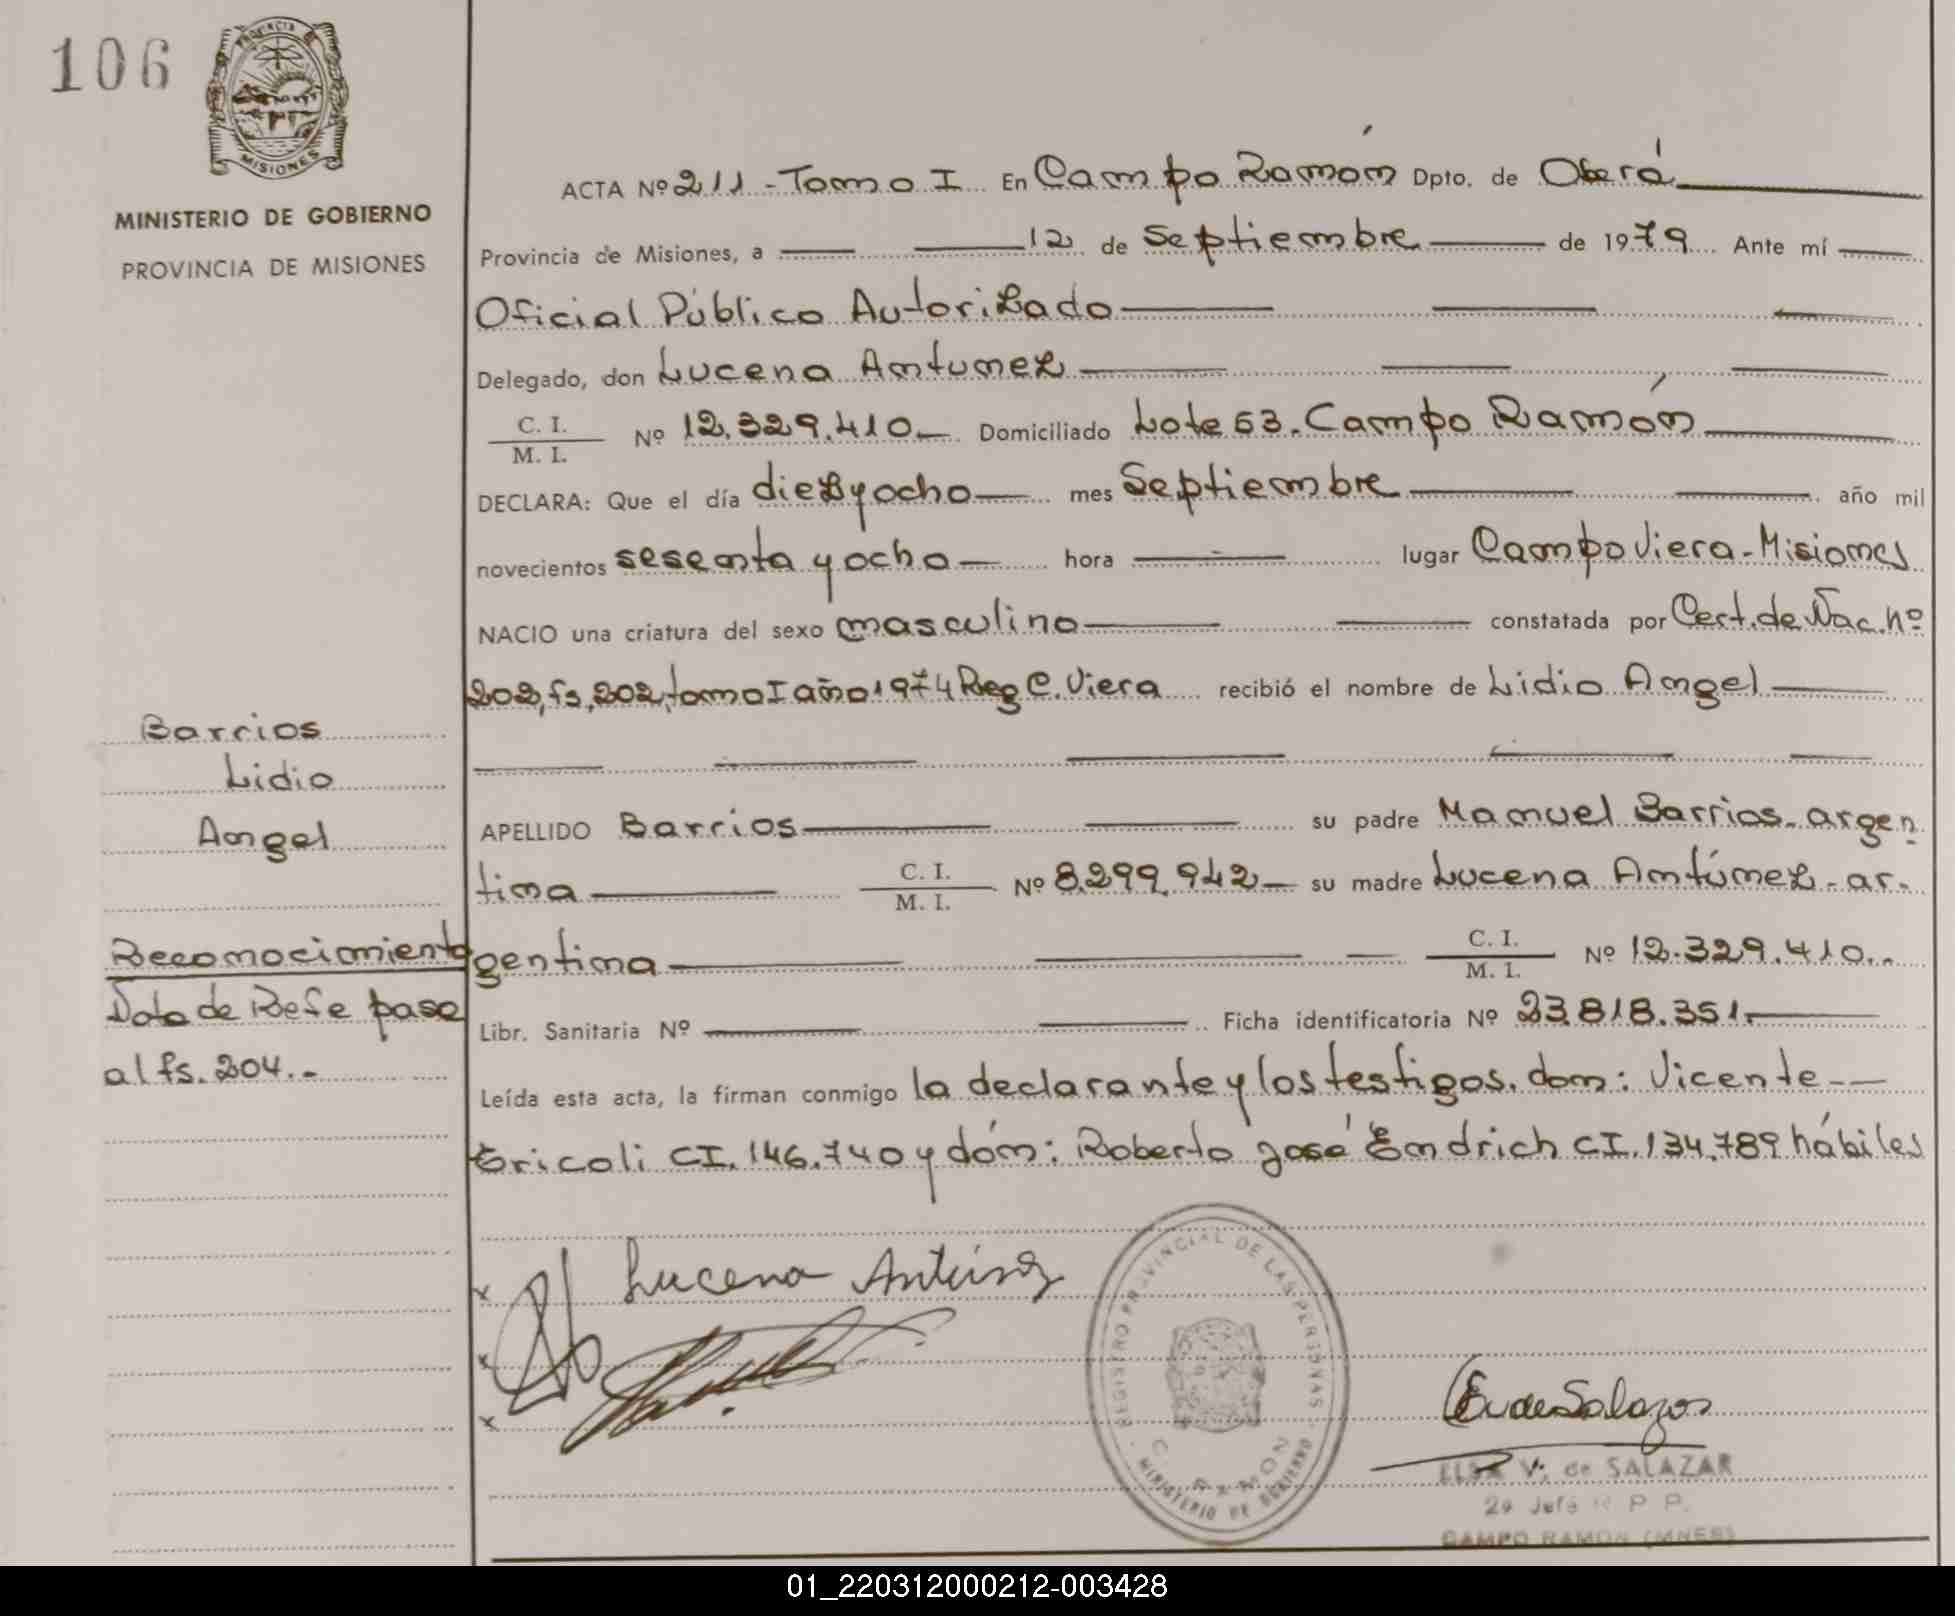 106
PROVINCIA DE
MISIONES
MINISTERIO DE GOBIERNO
PROVINCIA DE MISIONES
ACTA Nº 211 - Tomo I En Campo Ramón Dpto. de Oberá
Provincia de Misiones, a 12 de Septiembre de 1979 Ante mí
Oficial Público Autorizado
Delegado, don Lucena Antunez
C. I.
M. I.
Nº 12.329.410 Domiciliado Lote 53. Campo Ramón
DECLARA: Que el día diezyocho mes Septiembre año mil
novecientos sesenta y ocho hora lugar Campo Viera - Misiones
NACIO una criatura del sexo masculino constatada por Cert. de Nac. nº
202, fs, 202, tomo I año 1974 Reg C. Viera recibió el nombre de Lidio Angel
Barrios
Lidio
Angel
APELLIDO Barrios su padre Manuel Barrios - argen
tina C. I.
M. I.
Nº 8.299.942 su madre Lucena Antúnez - ar-
Reconocimiento
gentina C. I.
M. I.
Nº 12.329.410..
Nota de Refe pasa
al fs. 204.-
Libr. Sanitaria Nº Ficha identificatoria Nº 23.818.351.
Leída esta acta, la firman conmigo la declarante y los testigos, don: Vicente --
Ericoli CI. 146.740 y don: Roberto José Endrich CI. 134.789 hábiles
Lucena Antúnez
REGISTRO PROVINCIAL DE LAS PERSONAS
C. RAMON
MINISTERIO DE GOBIERNO
E V de Salazar
ELSA V. de SALAZAR
2º Jefe R P P.
CAMPO RAMON (MNES)
01_220312000212-003428